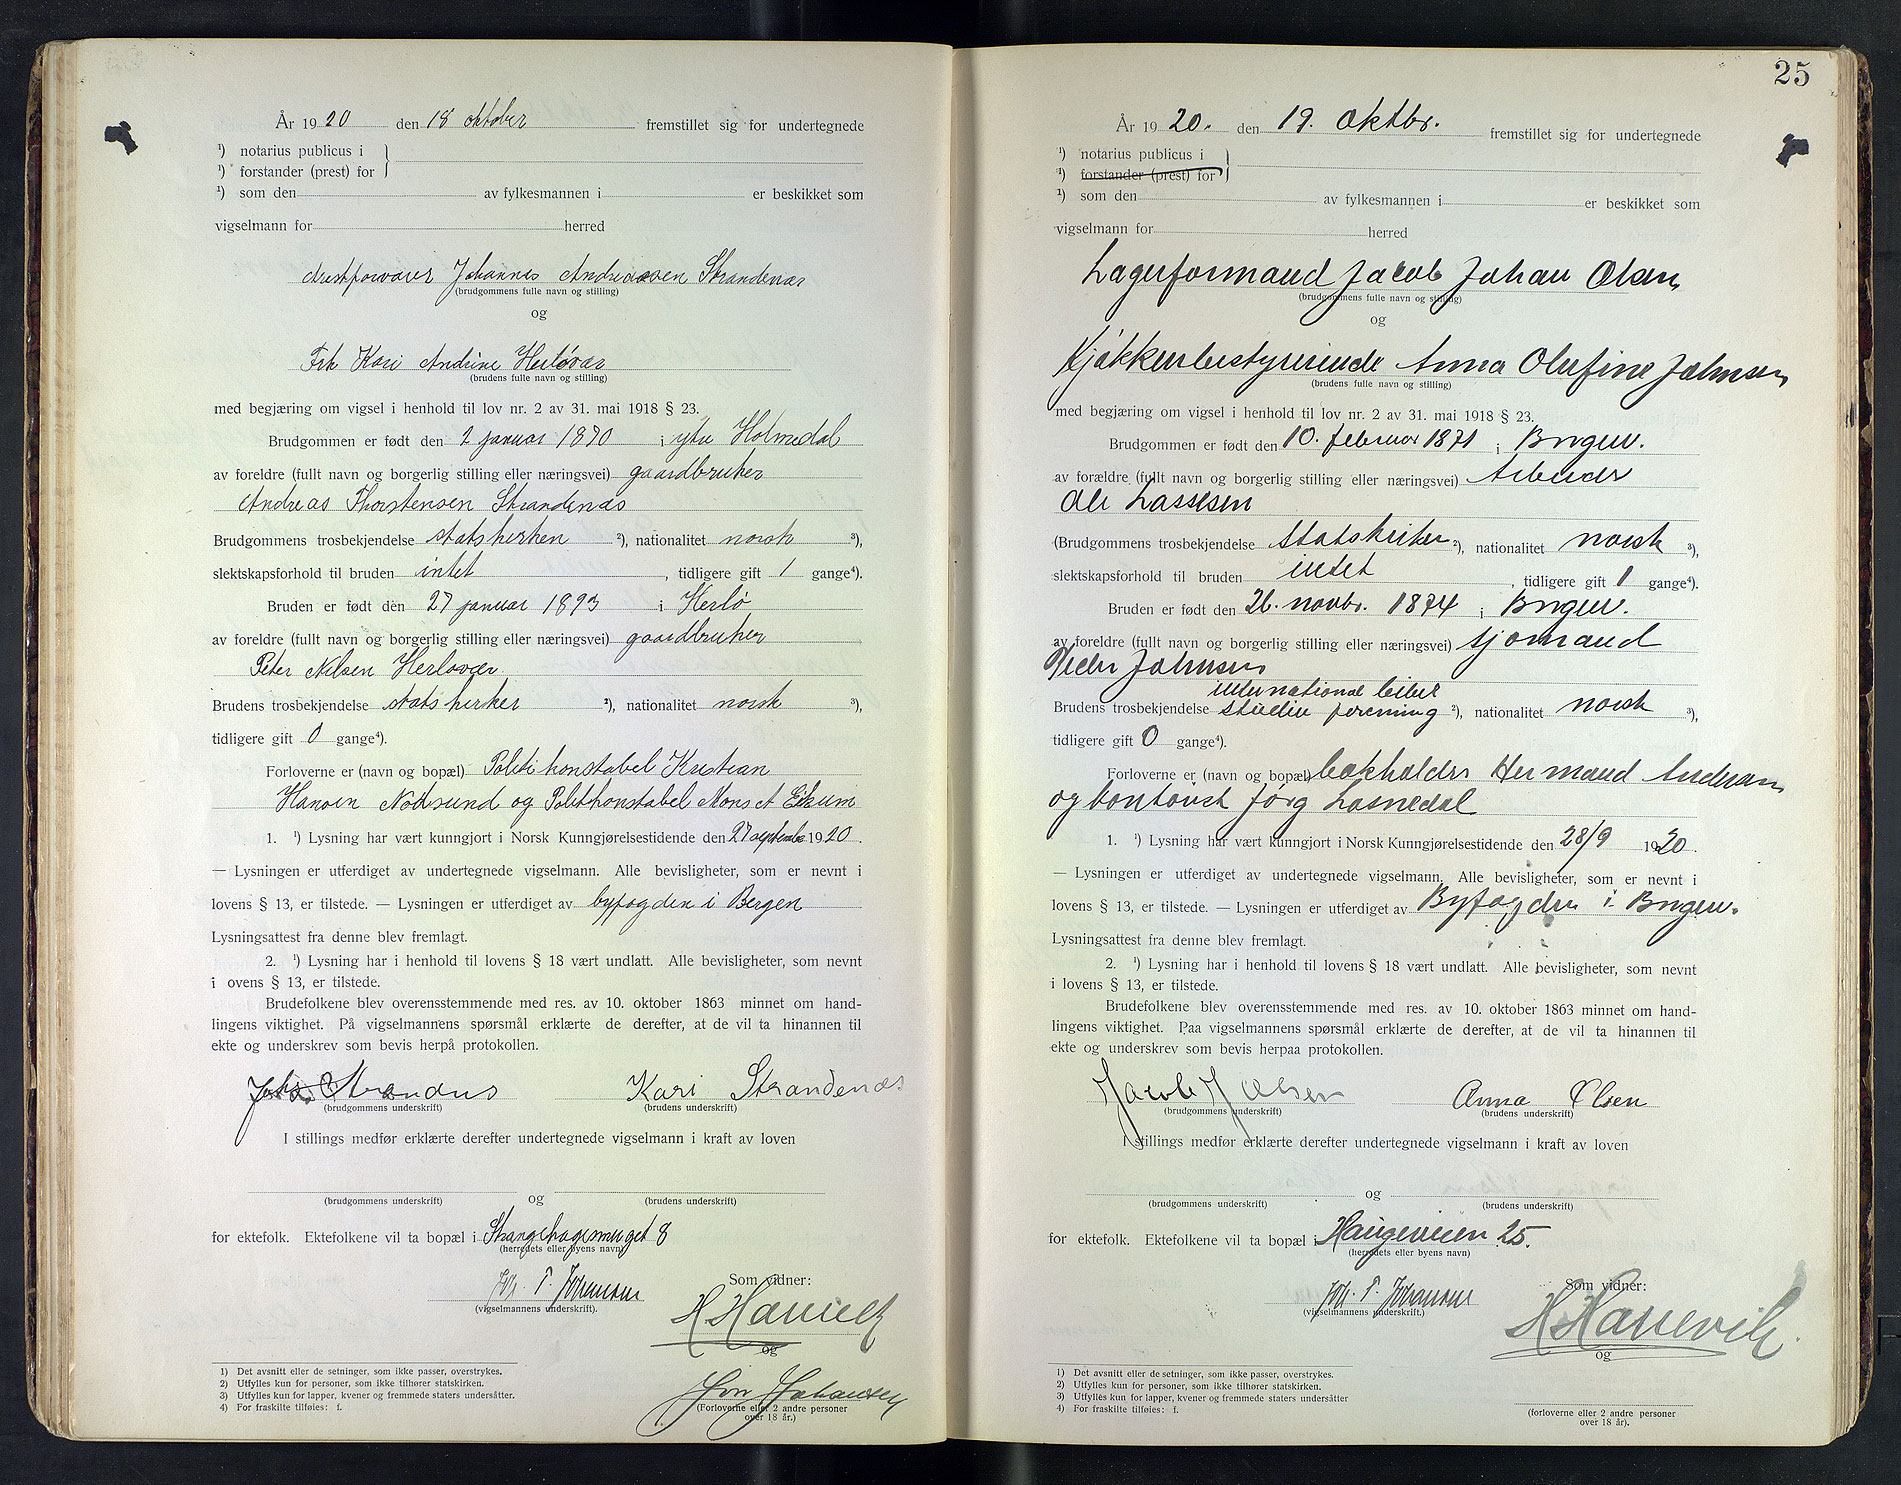 År 1920 den 18 oktober fremstillet sig for undertegnede
¹) notarius publicus i
¹) forstander (prest) for
¹) som den av fylkesmannen i er beskikket som
vigselmann for herred
Johannes Andreassen Strandenæs
(brudgommens fulle navn og stilling)
og
Frk Kari Andrine Herløvær
(brudens fulle navn og stilling)
med begjæring om vigsel i henhold til lov nr. 2 av 31. mai 1918 § 23.
Brudgommen er født den 2 januar 1890 i ytre Holmedal
av foreldre (fullt navn og borgerlig stilling eller næringsvei) gaardbruker
Andreas Thorstensen Strandenæs
Brudgommens trosbekjendelse statskirken ²), nationalitet norsk ³),
slektskapsforhold til bruden intet , tidligere gift 1 gange⁴).
Bruden er født den 27 januar 1893 i Herlø
av foreldre (fullt navn og borgerlig stilling eller næringsvei) gaardbruker
Peter Nilsen Herløvær
Brudens trosbekjendelse statskirken ²), nationalitet norsk ³),
tidligere gift 0 gange⁴).
Forloverne er (navn og bopæl) Politikonstabel Kristian
Hansen Nodsund og Politikonstabel Mons A Eikum
1. ¹) Lysning har vært kunngjort i Norsk Kunngjørelsestidende den 27 septembr 1920.
— Lysningen er utferdiget av undertegnede vigselmann. Alle bevisligheter, som er nevnt i
lovens § 13, er tilstede. — Lysningen er utferdiget av byfogden i Bergen
Lysningsattest fra denne blev fremlagt.
2. ¹) Lysning har i henhold til lovens § 18 vært undlatt. Alle bevisligheter, som nevnt
i ovens § 13, er tilstede.
Brudefolkene blev overensstemmende med res. av 10. oktober 1863 minnet om hand-
lingens viktighet. På vigselmannens spørsmål erklærte de derefter, at de vil ta hinannen til
ekte og underskrev som bevis herpå protokollen.
Johs Strandnæs Kari Strandenæs
(brudgommens underskrift) (brudens underskrift)
I stillings medfør erklærte derefter undertegnede vigselmann i kraft av loven
og
(brudgommens underskrift) (brudens underskrift)
for ektefolk. Ektefolkene vil ta bopæl i Strangehagesmuget 8
(herredets eller byens navn)
Joh. T. Johansen Som vidner:
(vigselmannens underskrift).
H. Hanevik
og
Jon Johansen
(Forloverne eller 2 andre personer
over 18 år.)
1) Det avsnitt eller de setninger, som ikke passer, overstrykes.
2) Utfylles kun for personer, som ikke tilhører statskirken.
3) Utfylles kun for lapper, kvener og fremmede staters undersåtter.
4) For fraskilte tilføies: f.
25
År 1920. den 19. oktbr. fremstillet sig for undertegnede
¹) notarius publicus i
¹) forstander (prest) for
¹) som den av fylkesmannen i er beskikket som
vigselmann for herred
Lagerformand Jacob Johan Olsen
(brudgommens fulle navn og stilling)
og
Kjøkkenbestyrerinde Anna Olufine Johnsen
(brudens fulle navn og stilling)
med begjæring om vigsel i henhold til lov nr. 2 av 31. mai 1918 § 23.
Brudgommen er født den 10. februar 1871 i Bergen.
av forældre (fullt navn og borgerlig stilling eller næringsvei) Arbeider
Ole Lassesen
(Brudgommens trosbekjendelse statskirken ²), nationalitet norsk ³),
slektskapsforhold til bruden intet , tidligere gift 1 gange⁴).
Bruden er født den 26. novbr. 1874 i Bergen.
av foreldre (fullt navn og borgerlig stilling eller næringsvei) sjømand
Peder Johnsen
international bibel
Brudens trosbekjendelse studie forening ²), nationalitet norsk ³),
tidligere gift 0 gange⁴).
Forloverne er (navn og bopæl) bokholder Hermand Andersen
og kontorist Jørg Losnedal
1. ¹) Lysning har vært kunngjort i Norsk Kunngjørelsestidende den 28/9 1920.
— Lysningen er utferdiget av undertegnede vigselmann. Alle bevisligheter, som er nevnt i
lovens § 13, er tilstede. — Lysningen er utferdiget av Byfogden i Bergen.
Lysningsattest fra denne blev fremlagt.
2. ¹) Lysning har i henhold til lovens § 18 vært undlatt. Alle bevisligheter, som nevnt
i lovens § 13, er tilstede.
Brudefolkene blev overensstemmende med res. av 10. oktober 1863 minnet om hand-
lingens viktighet. Paa vigselmannens spørsmål erklærte de derefter, at de vil ta hinannen til
ekte og underskrev som bevis herpaa protokollen.
Jacob J Olsen Anna Olsen
(brudgommens underskrift) (brudens underskrift)
I stillings medfør erklærte derefter undertegnede vigselmann i kraft av loven
og
(brudgommens underskrift) (brudens underskrift)
for ektefolk. Ektefolkene vil ta bopæl i Haugeveien 25.
(herredets eller byens navn)
Joh. T. Johansen Som vidner:
(vigselmannens underskrift.)
H Hanevik.
og
(forloverne eller 2 andre personer
over 18 år).
1) Det avsnitt eller de setninger, som ikke passer, overstrykes.
2) Utfylles kun for personer, som ikke tilhører statskirken.
3) Utfylles kun for lapper, kvener og fremmede staters undersåtter
4) For fraskilte tilføies: f.